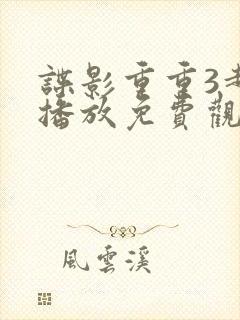 諜影重重3
播放免費觀
風雲溪